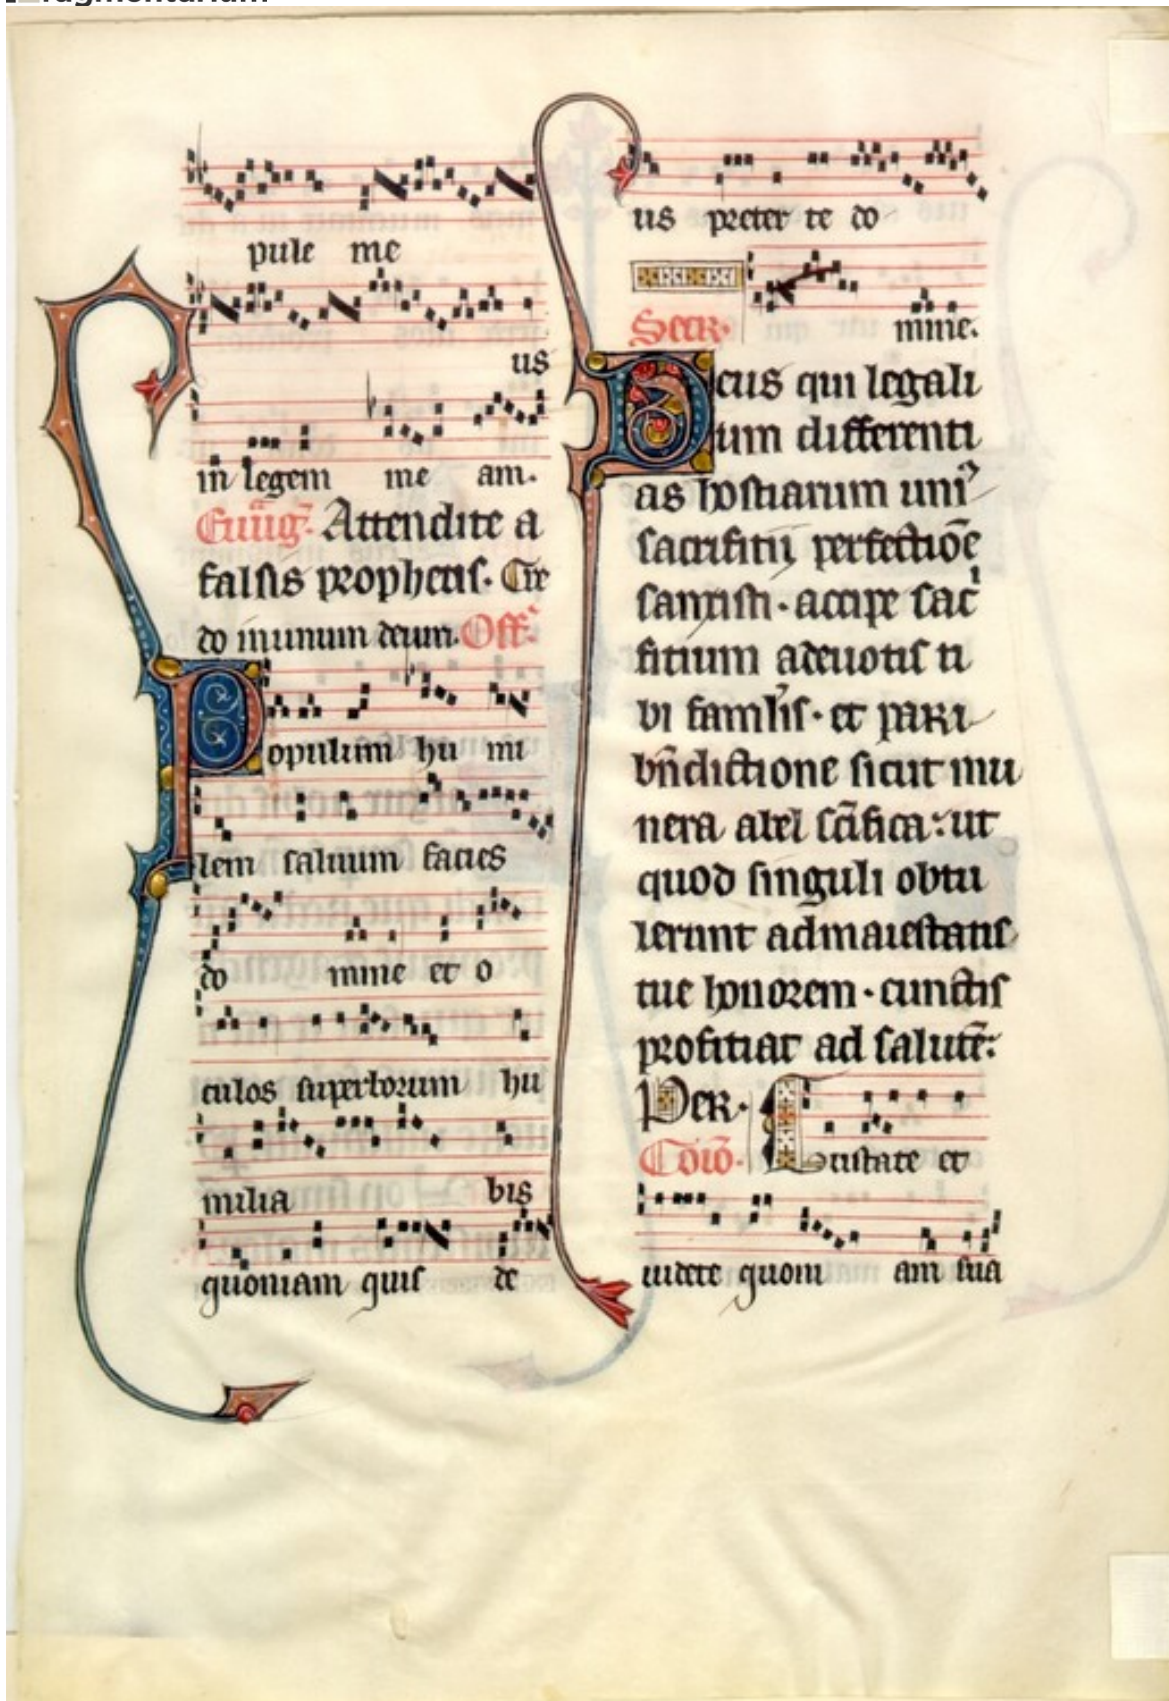 fragmentarium
pule me
us
in legem me am.
Euāg. Attendite a
falsis prophetis. Cre
do in unum deum. Off.
Populum hu mi
lem saluum facies
do mine et o
culos superborum hu
milia bis
quoniam quis de
us preter te do
Secr. mine.
Deus qui legali
um differenti
as hostiarum uniꝰ
sacrifitii perfectiōe
sanxisti. accipe sac
fitium a deuotis ti
bi famlis. et pari
bn̄dictione sicut mu
nera abel scīfica: ut
quod singuli obtu
lerunt ad maiestatis
tue honorem. cunctis
profitiat ad salutē:
Per.
Cōiō. Gustate et
uidete quoni am sua